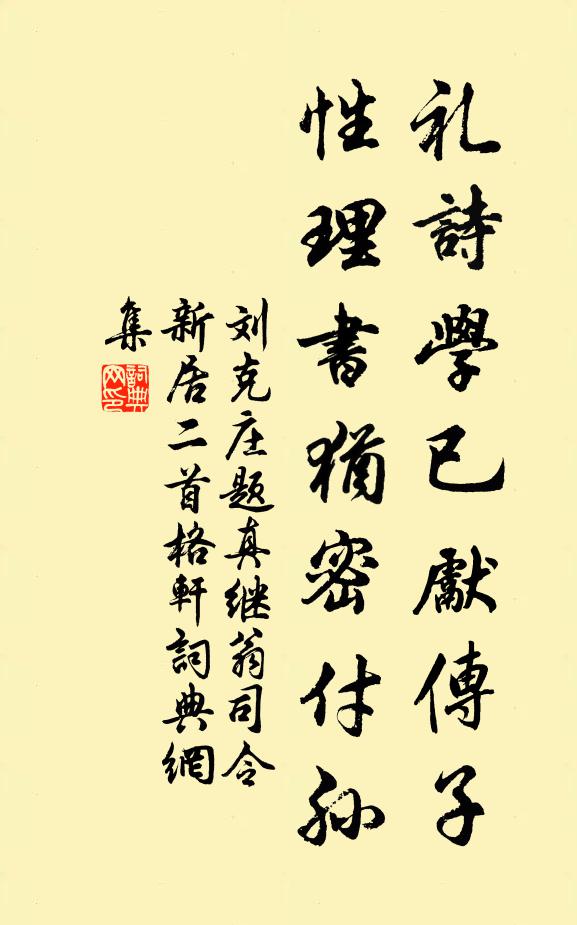 礼詩學已獻傳子
性理書猶密付孙
刘克庄题真继翁司令
新居二首格軒詞典網
集
詞典
网印